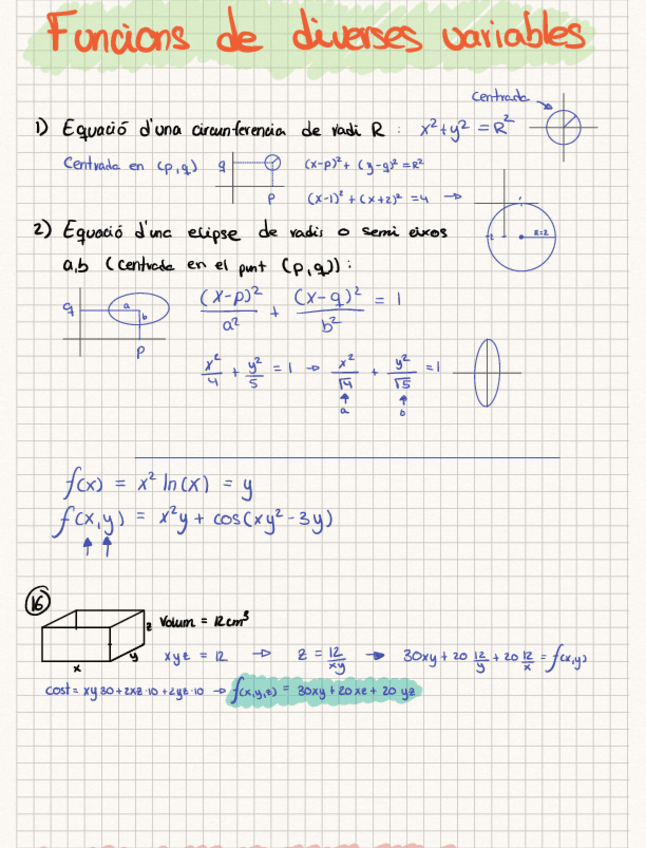 Funcions de diverses variables
centrada
1) Equació d'una circunferencia de radi R : x² + y² = R²
Centrada en (p,q) q p (x-p)² + (y-q)² = R²
(x-1)² + (x+2)² = 4 →
2) Equació d'una elipse de radis o semi eixos
a,b (centrada en el punt (p,q)) :
-2 R=2
q a b p (x-p)²/a² + (x-q)²/b² = 1
x²/4 + y²/5 = 1 → x²/√4 + y²/√5 = 1
a b
f(x) = x² ln(x) = y
f(x,y) = x²y + cos(xy² - 3y)
16
z Volum = 12cm³
x y xyz = 12 → z = 12/xy → 30xy + 20 12/y + 20 12/x = f(x,y)
cost = xy 30 + 2xz·10 + 2yz·10 → f(x,y,z) = 30xy + 20xz + 20 yz